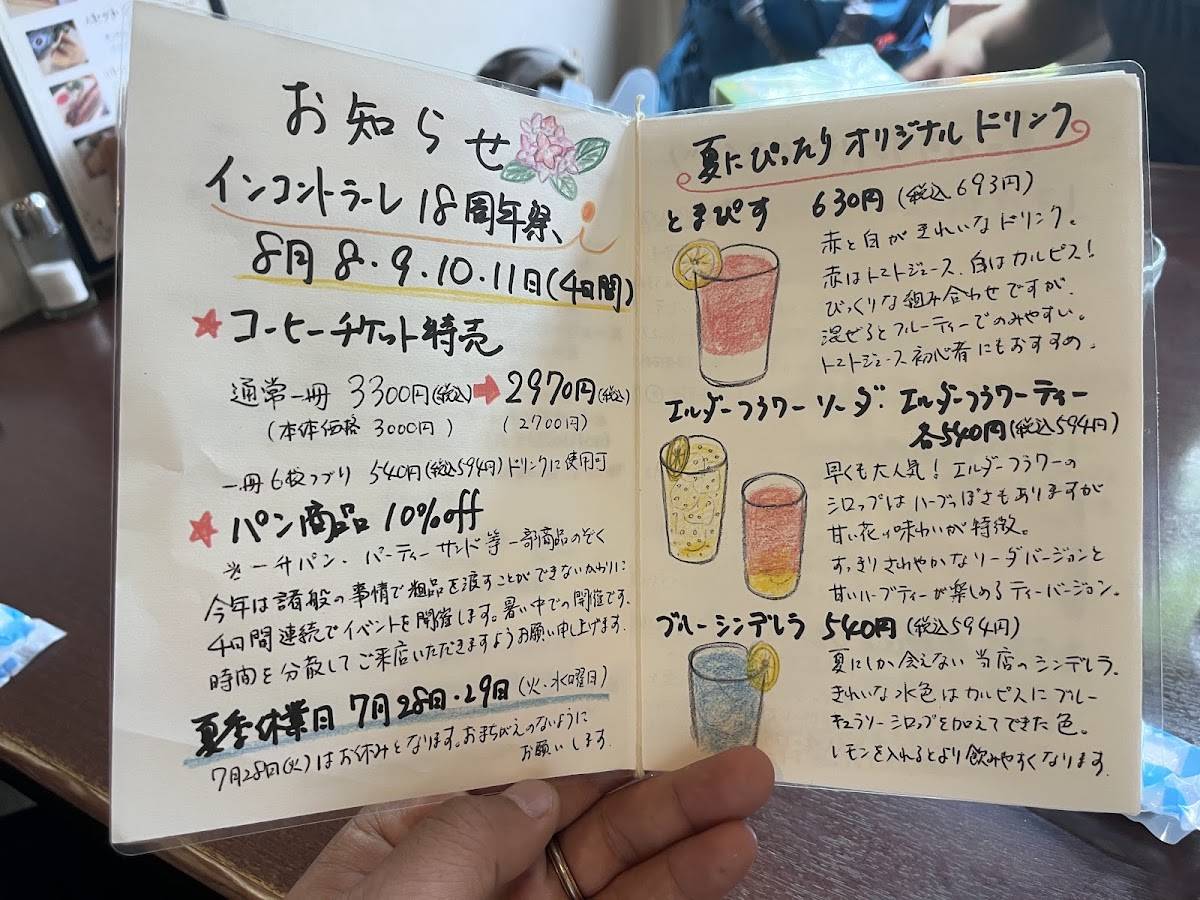 お知らせ
インコントラーレ 18周年祭
8月 8・9・10・11日(4日間)
★コーヒーチケット特売
通常一冊 3300円(税込)➡2970円(税込)
(本体価格 3000円) (2700円)
一冊6枚つづり 540円(税込594円)ドリンクに使用可
★パン商品 10%off
※一斤パン・パーティーサンド等一部商品のぞく
今年は諸般の事情で粗品を渡すことができないかわりに
4日間連続でイベントを開催します。暑い中での開催です。
時間を分散してご来店いただきますようお願い申し上げます。
夏季休業日 7月28日・29日(火・水曜日)
7月28日(火)はお休みとなります。おまちがえのないように
お願いします。
夏にぴったり オリジナルドリンク
とまぴす 630円(税込693円)
赤と白がきれいなドリンク。
赤はトマトジュース、白はカルピス!
びっくりな組み合わせですが、
混ぜるとフルーティーでのみやすい。
トマトジュース初心者にもおすすめ。
エルダーフラワーソーダ・エルダーフラワーティー
各540円(税込594円)
早くも大人気!エルダーフラワーの
シロップはハーブっぽさもありますが
甘い花の味わいが特徴。
すっきりさわやかなソーダバージョンと
甘いハーブティーが楽しめるティーバージョン。
ブルーシンデレラ 540円(税込594円)
夏にしか会えない当店のシンデレラ。
きれいな水色はカルピスにブルー
キュラソーシロップを加えてできた色。
レモンを入れるとより飲みやすくなります。